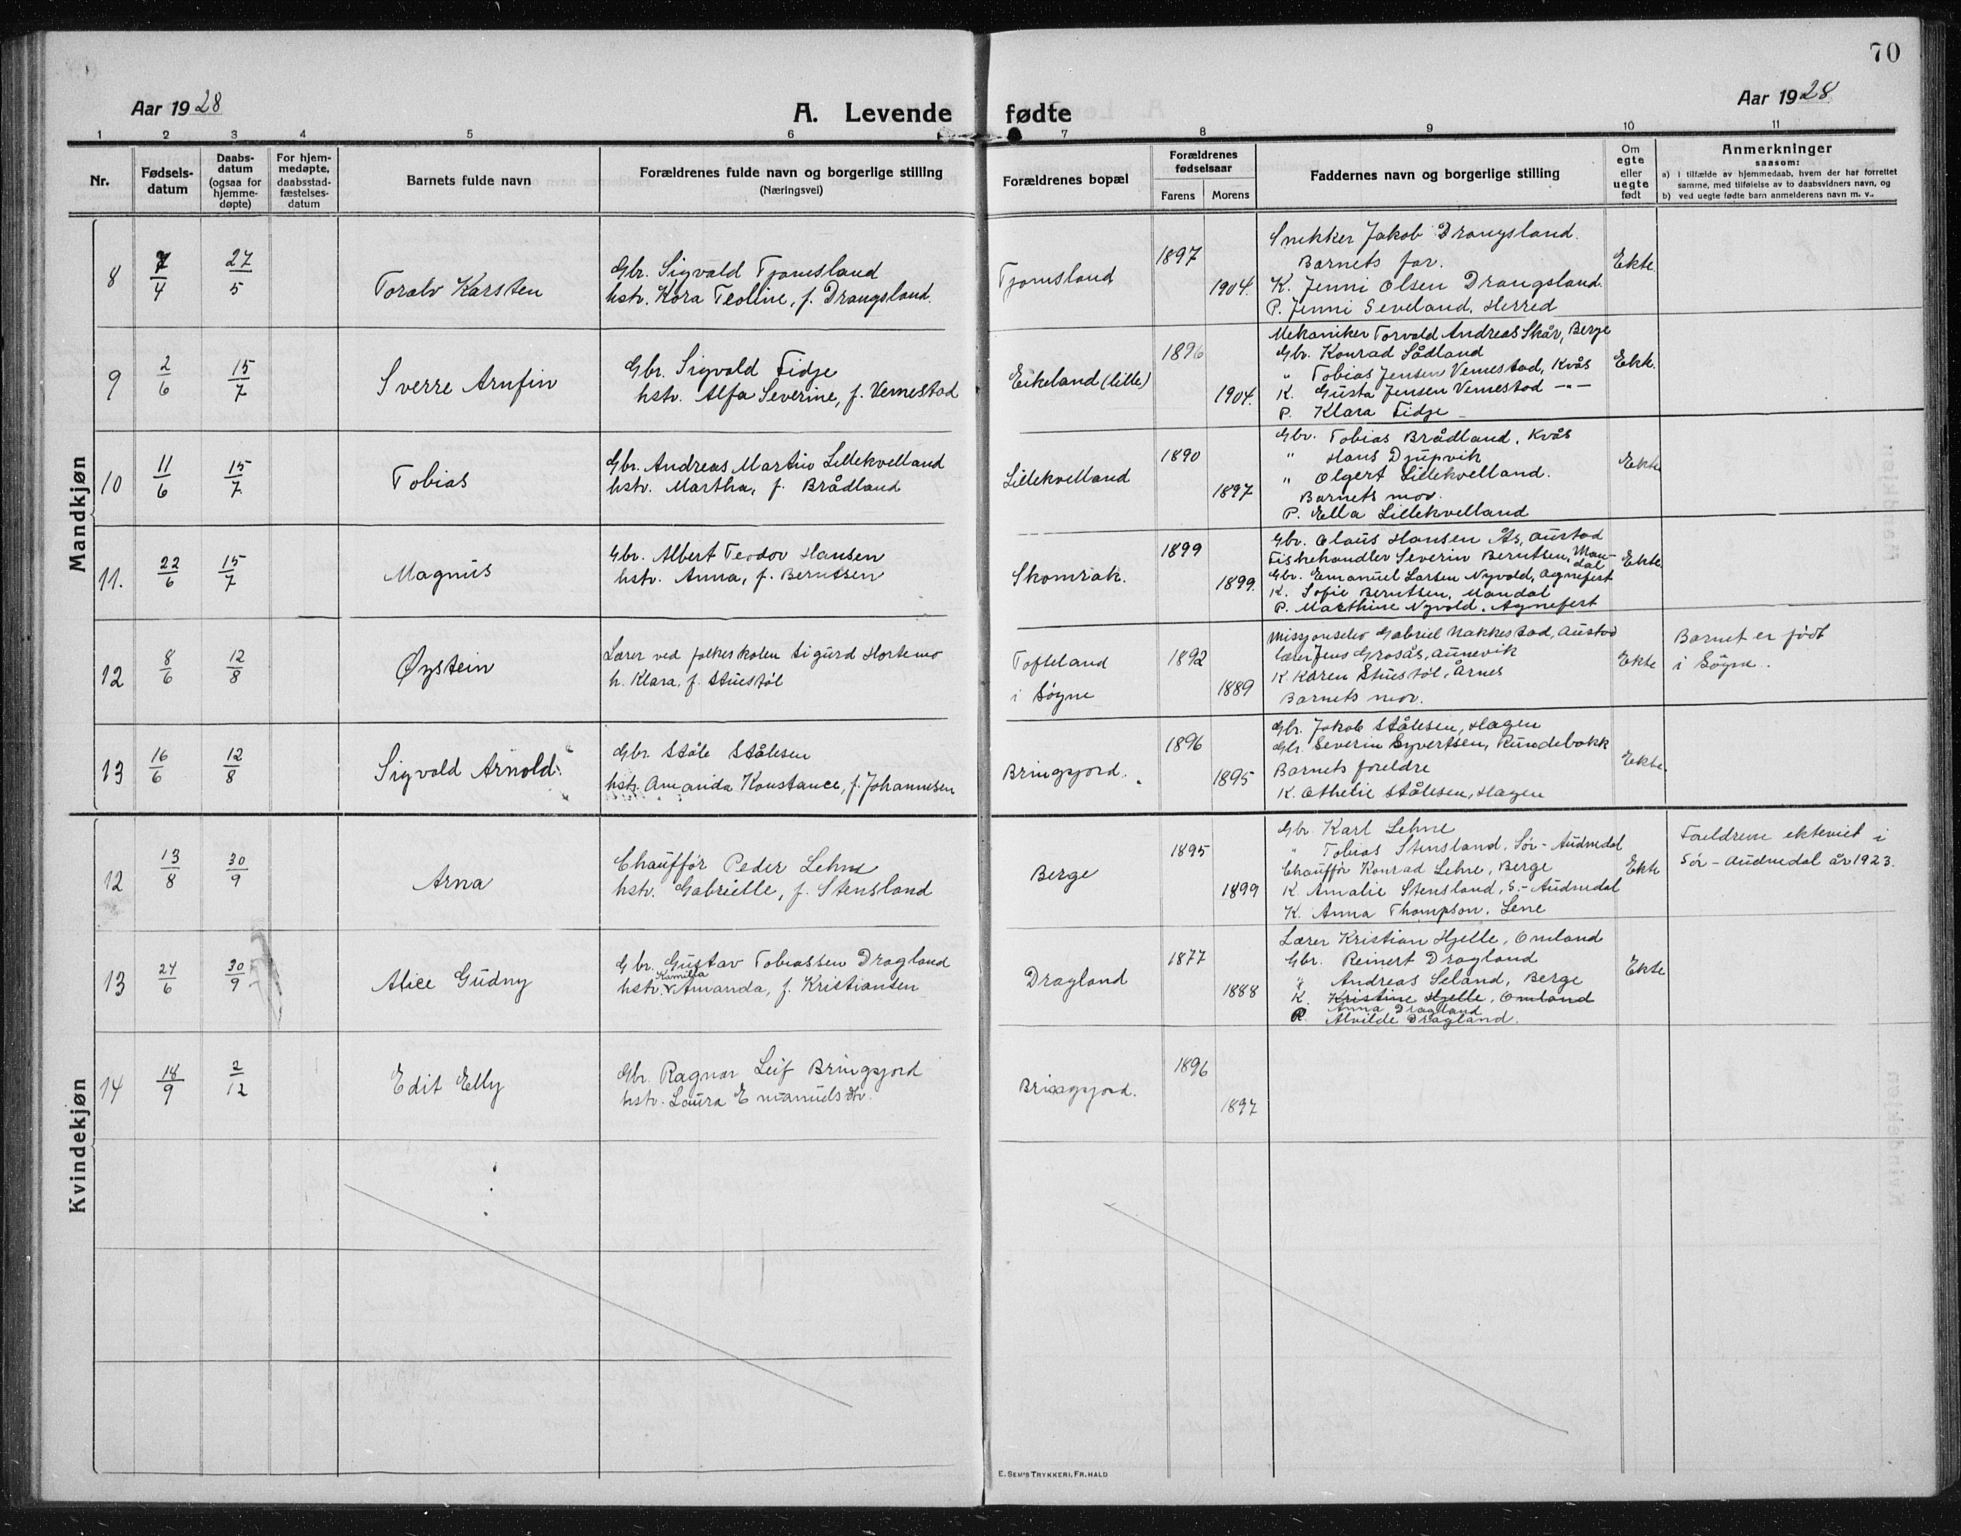 70
Aar 1928
A. Levende fødte
Aar 1928
1 2 3 4 5 6 7 8 9 10 11
Nr.
Fødsels-
datum
Daabs-
datum
(ogsaa for
hjemme-
døpte)
For hjem-
medøpte,
daabsstad-
fæstelses-
datum
Barnets fulde navn
Forældrenes fulde navn og borgerlige stilling
(Næringsvei)
Forældrenes bopæl
Forældrenes
fødselsaar
Farens Morens
Faddernes navn og borgerlige stilling
Om
egte
eller
uegte
født
Anmerkninger
saasom:
a) I tilfælde av hjemmedaab, hvem der har forrettet
samme, med tilføielse av to daabsvidners navn, og
b) ved uegte fødte barn anmelderens navn m. v.,
Mandkjøn
8 7/4 27/5 Toralv Karsten
Gbr. Sigvald Tjomsland
hstr. Kora Teoline, f. Drangsland.
Tjomsland 1897 1904.
Snekker Jakob Drangsland.
Barnets far.
K. Jenni Olsen Drangsland.
P. Jenni Seveland, Herred
Ekte.
9 2/6 15/7 Sverre Arnfin
Gbr. Sigvald Fidje
hstr. Alfa Severine, f. Vemestad
Eikeland (lille) 1896 1904.
Mekaniker Torvald Andreas Skår, Berge
Gbr. Konrad Sådland
" Tobias Jensen Vemestad, Kvås
K. Gusta Jensen Vemestad -"-
P. Klara Fidje
Ekte.
10 11/6 15/7 Tobias
Gbr. Andreas Martin Lillekvelland
hstr. Martha, f. Brådland
Lillekvelland 1890 1897
Gbr. Tobias Brådland, Kvås
" Hans Djupvik
" Olgert Lillekvelland.
Barnets mor.
P. Ella Lillekvelland
Ekte
11. 22/6 15/7 Magnus
Gbr. Albert Teodor Hansen
hstr. Anna, f. Berntsen
Skomrak. 1899 1899.
Gbr. Olaus Hansen Ås, Austad
Fiskehandler Severin Berntsen, Man-
dal
Gbr. Emanuel Larsen Nyvold, Agnefest
K. Sofie Berntsen, Mandal
P. Marthine Nyvold, Agnefest
Ekte
12 8/6 12/8 Øystein
Lærer ved folkeskolen Sigurd Hortemo
h. Klara, f. Stuestøl
Tofteland
i Søgne
1892 1889
Misjonselev Gabriel Nakkestad, Austad
Lærer Jens Grosås, Aunevik
K Karen Stuestøl, Årnes
Barnets mor.
Ekte
Barnet er født
i Søgne.
13 16/6 12/8 Sigvald Arnold
Gbr Ståle Stålesen
hstr. Amanda Konstance, f. Johannesen
Bringsjord. 1896 1895
Gbr. Jakob Stålesen, Hagen
Gbr. Severin Syvertsen, Rundebakk
Barnets foreldre
K. Othelie Stålesen, Hagen
Ekte.
Kvindekjøn
12 13/8 30/9 Arna
Chauffør Peder Lehne
hstr. Gabrielle, f. Stensland
Berge 1895 1899
Gbr Karl Lehne
" Tobias Stensland, Sør-Audnedal
Chauffør Konrad Lehne, Berge
K. Amalie Stensland, S.-Audnedal
K. Anna Thompson, Lene
Ekte
Foreldrene ekteviet i
Sør-Audnedal år 1923.
13 24/6 30/9 Alice Gudny
Gbr. Gustav Tobiassen Dragland
Kamilla
hstr. Amanda, f. Kristiansen
Dragland 1877 1888
Lærer Kristian Hjelle, Omland
Gbr. Reinert Dragland
" Andreas Seland, Berge
K. Kristine Hjelle, Omland
Anna Dragland
P. Alvilde Dragland.
Ekte
14 18/9 2/12 Edit Elly
Gbr. Ragnar Leif Bringsjord
hstr. Laura Emanuelsdtr.
Bringsjord. 1896 1897
E. Sem's Trykkeri, Fr.hald